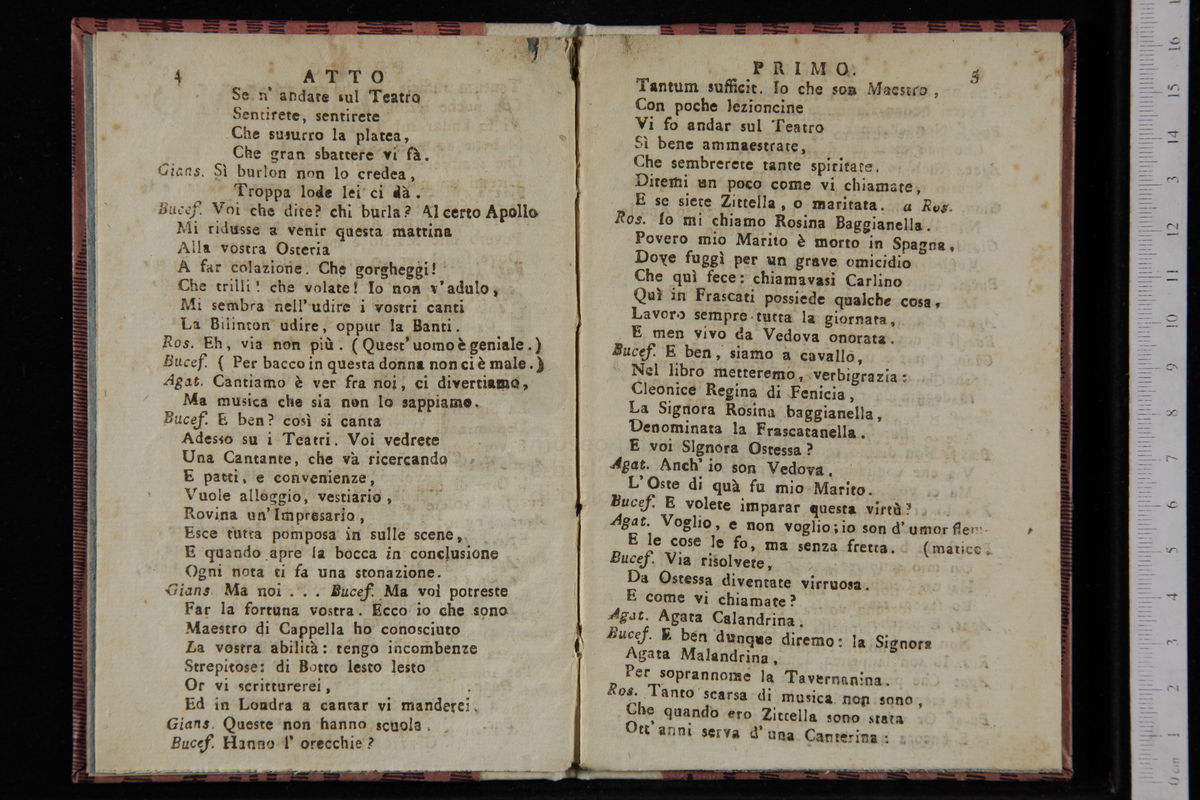 4 ATTO
Se n' andate sul Teatro
Sentirete, sentirete
Che susurro la platea,
Che gran sbattere vi fà.
Gians. Sì burlon non lo credea,
Troppa lode lei ci dà.
Bucef. Voi che dite? chi burla? Al certo Apollo
Mi ridusse a venir questa mattina
Alla vostra Osteria
A far colazione. Che gorgheggi!
Che trilli! che volate! Io non v'adulo,
Mi sembra nell' udire i vostri canti
La Bilinton udire, oppur la Banti.
Ros. Eh, via non più. (Quest' uomo è geniale.)
Bucef. (Per bacco in questa donna non ci è male.)
Agat. Cantiamo è ver fra noi, ci divertiamo,
Ma musica che sia non lo sappiamo.
Bucef. E ben? così si canta
Adesso su i Teatri. Voi vedrete
Una Cantante, che và ricercando
E patti, e convenienze,
Vuole alloggio, vestiario,
Rovina un' Impresario,
Esce tutta pomposa in sulle scene,
E quando apre la bocca in conclusione
Ogni nota ti fa una stonazione.
Gians. Ma noi . . . Bucef. Ma voi potreste
Far la fortuna vostra. Ecco io che sono
Maestro di Cappella ho conosciuto
La vostra abilità: tengo incombenze
Strepitose: di Botto lesto lesto
Or vi scritturerei,
Ed in Londra a cantar vi manderei.
Gians. Queste non hanno scuola.
Bucef. Hanno l' orecchie?
PRIMO. 5
Tantum sufficit. Io che son Maestro,
Con poche lezioncine
Vi fo andar sul Teatro
Sì bene ammaestrate,
Che sembrerete tante spiritate.
Ditemi un poco come vi chiamate,
E se siete Zittella, o maritata. a Ros.
Ros. Io mi chiamo Rosina Baggianella.
Povero mio Marito è morto in Spagna,
Dove fuggì per un grave omicidio
Che quì fece: chiamavasi Carlino
Quì in Frascati possiede qualche cosa,
Lavoro sempre tutta la giornata,
E men vivo da Vedova onorata.
Bucef. E ben, siamo a cavallo,
Nel libro metteremo, verbigrazia:
Cleonice Regina di Fenicia,
La Signora Rosina baggianella,
Denominata la Frascatanella.
E voi SIgnora Ostessa?
Agat. Anch' io son Vedova.
L' Oste di quà fu mio Marito.
Bucef. E volete imparar questa virtù?
Agat. Voglio, e non voglio; io son d' umor flem-
E le cose le fo, ma senza fretta. (matico.
Bucef. Via risolvete,
Da Ostessa diventate virruosa.
E come vi chiamate?
Agat. Agata Calandrina.
Bucef. E ben dunque diremo: la Signora
Agata Malandrina,
Per soprannome la Tavernanina.
Ros. Tanto scarsa di musica non sono,
Che quando ero Zittella sono stata
Ott' anni serva d' una Canterina:
0 cm 1 2 3 4 5 6 7 8 9 10 11 12 13 14 15 16